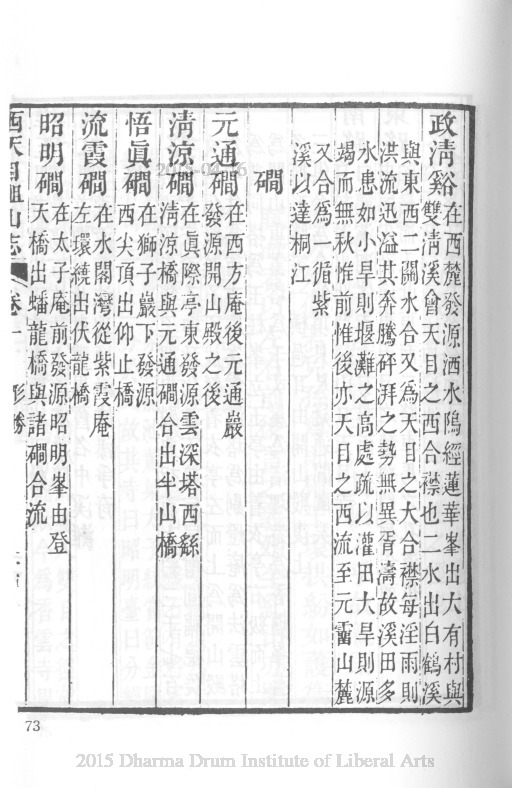 政清谿在西麓發源洒水隝經蓮華峯出大有村與
雙清溪會天目之西合襟也二水出白鶴溪
與東西二關水合又為天目之大合襟每淫雨則
洪流迅溢其奔騰砰湃之勢無異胥濤故溪田多
水患如小旱則堰灘之高處疏以灌田大旱則源
竭而無秋惟前惟後亦天目之西流至元霤山麓
又合為一循紫
溪以達桐江
磵
元通磵在西方庵後元通巖
發源開山殿之後
清涼磵在眞際亭東發源雲深塔西繇
清涼橋與元通磵合出半山橋
悟眞磵在獅子巖下發源
西尖頂出仰止橋
流霞磵在水閣灣從紫霞庵
左環繞出伏龍橋
昭明磵在太子庵前發源昭明峯由登
天橋出蟠龍橋與諸磵合流
西天目祖山志 卷一 形勝
73
2015 Dharma Drum Institute of Liberal Arts